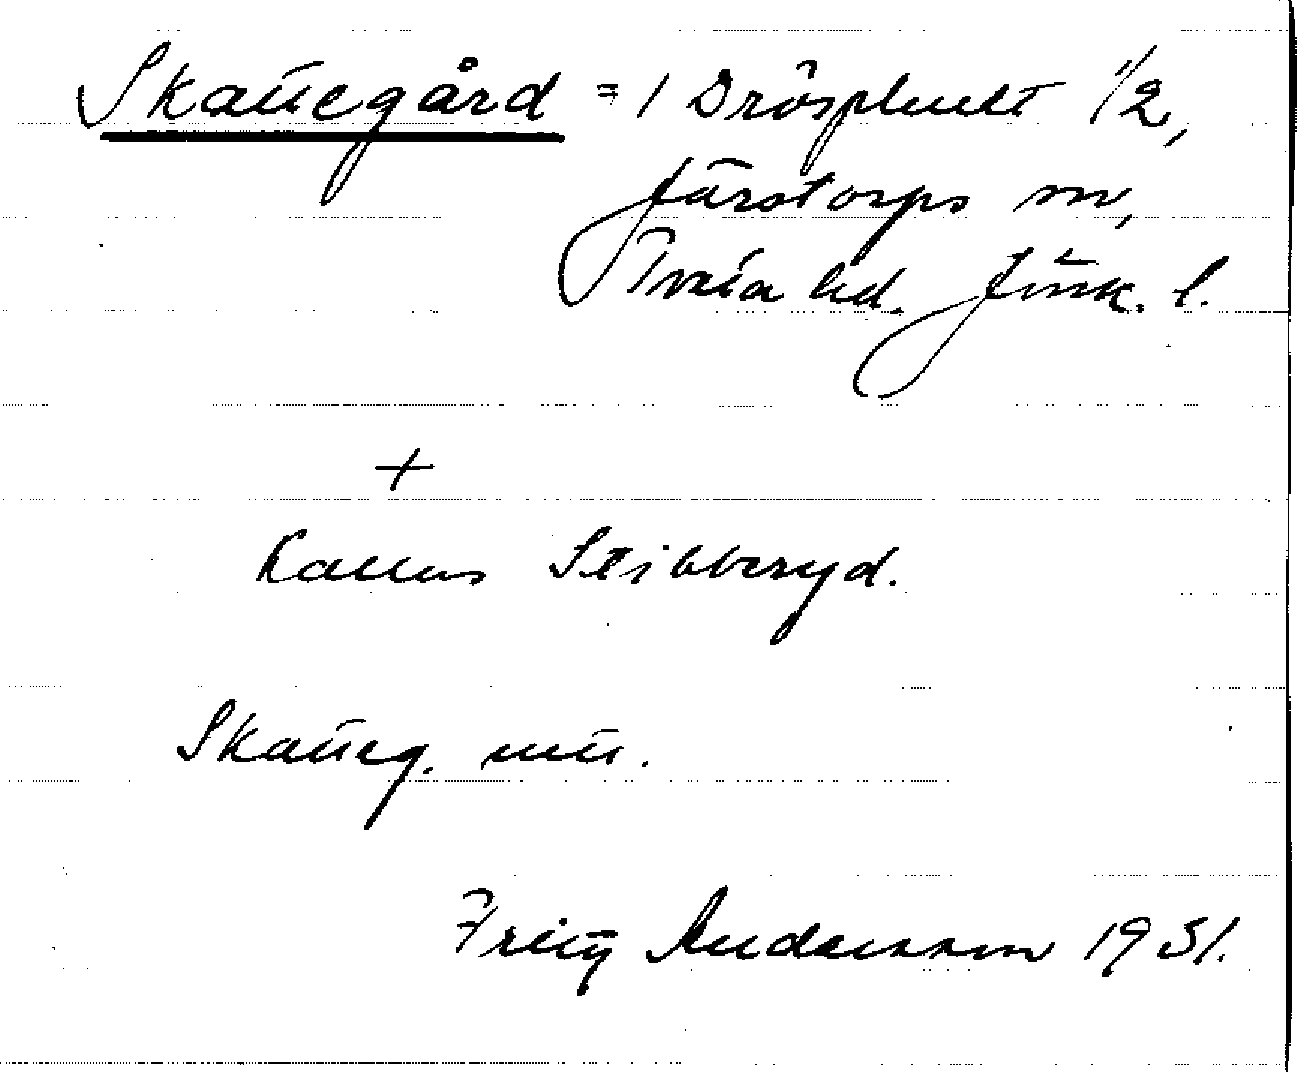 Skattegård = 1 1/2,
Järstorps sn,
Tveta hd. Jönk. l.
+
Kallas Stibberyd.
Skatteg.
Fritz Andersson 1931.